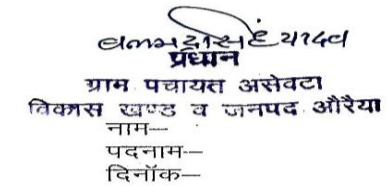 बलभद्रसिंह यादव
प्रधान
ग्राम पचायत असेवटा
विकास खण्ड व जनपद औरैया
नाम—
पदनाम—
दिनॉक—